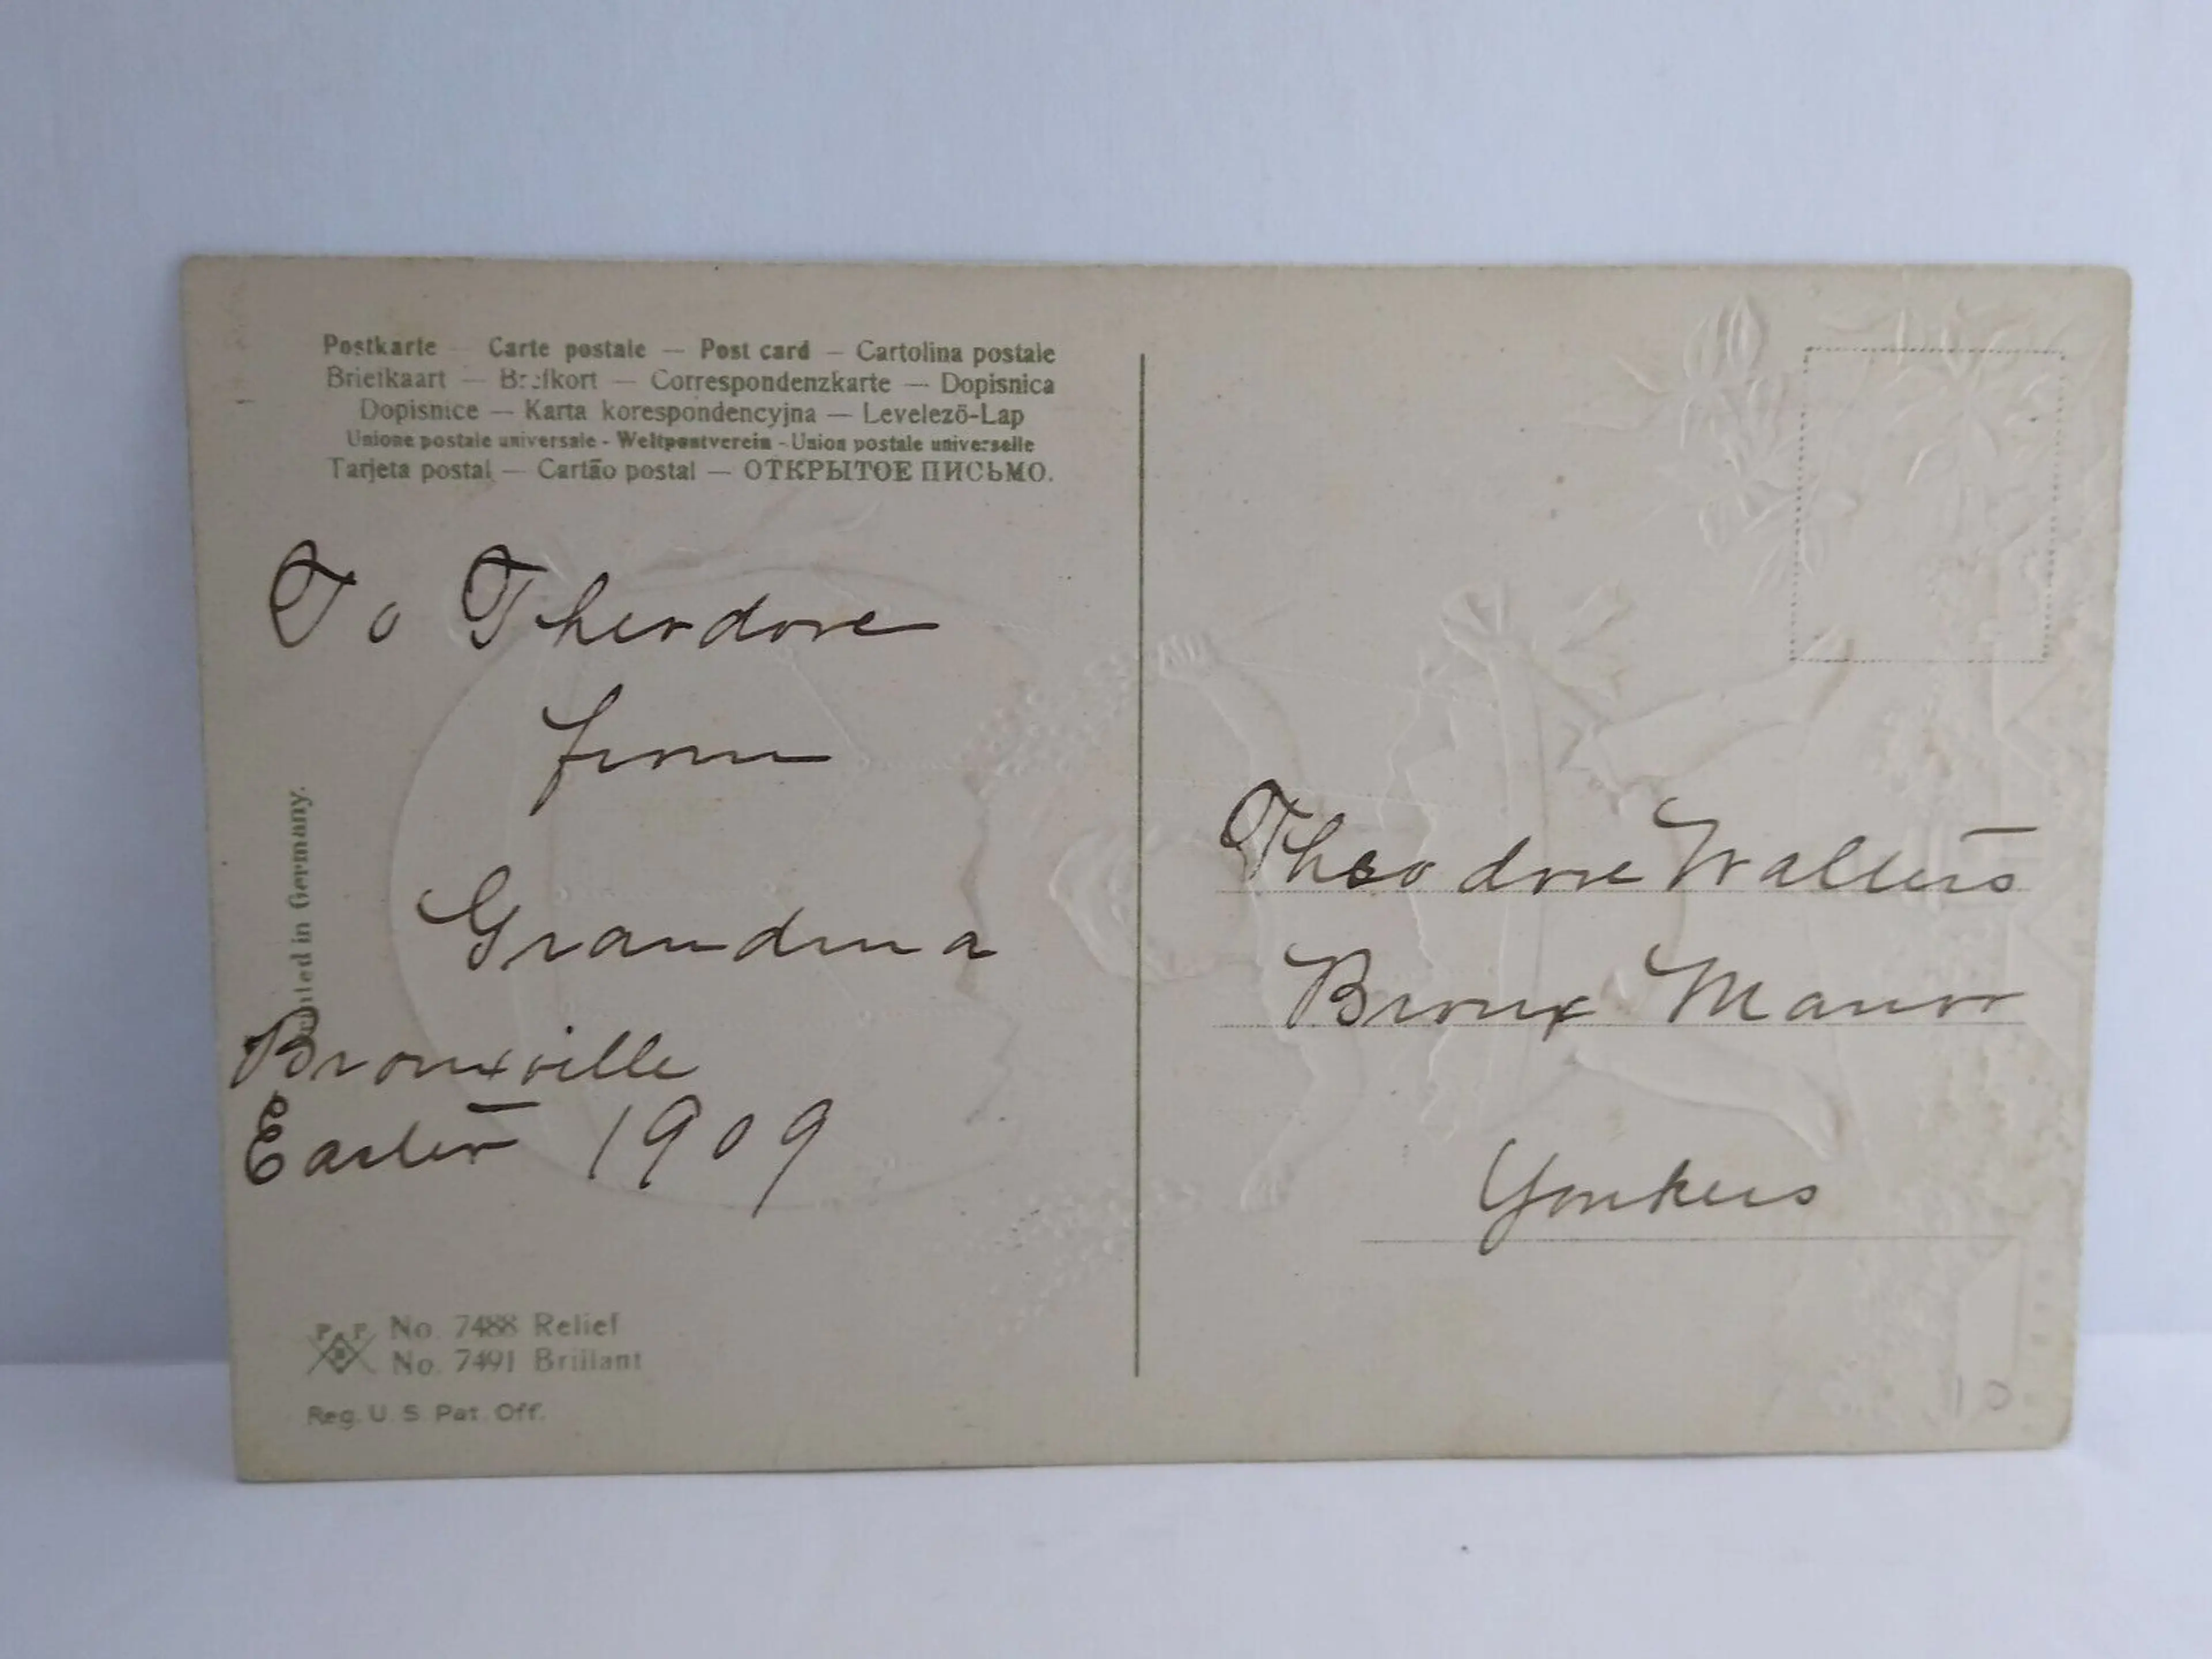 Postkarte — Carte postale — Post card — Cartolina postale
Briefkaart — Brefkort — Correspondenzkarte — Dopisnica
Dopisnice — Karta korespondencyjna — Levelező-Lap
Unione postale universale - Weltpostverein - Union postale universelle
Tarjeta postal — Cartão postal — ОТКРЫТОЕ ПИСЬМО.
To Theodore
from
Grandma
Bronxville
Easter 1909
Printed in Germany.
P F B
No. 7488 Relief
No. 7491 Brillant
Reg. U. S. Pat. Off.
Theodore Walters
Bronx Manor
Yonkers
10